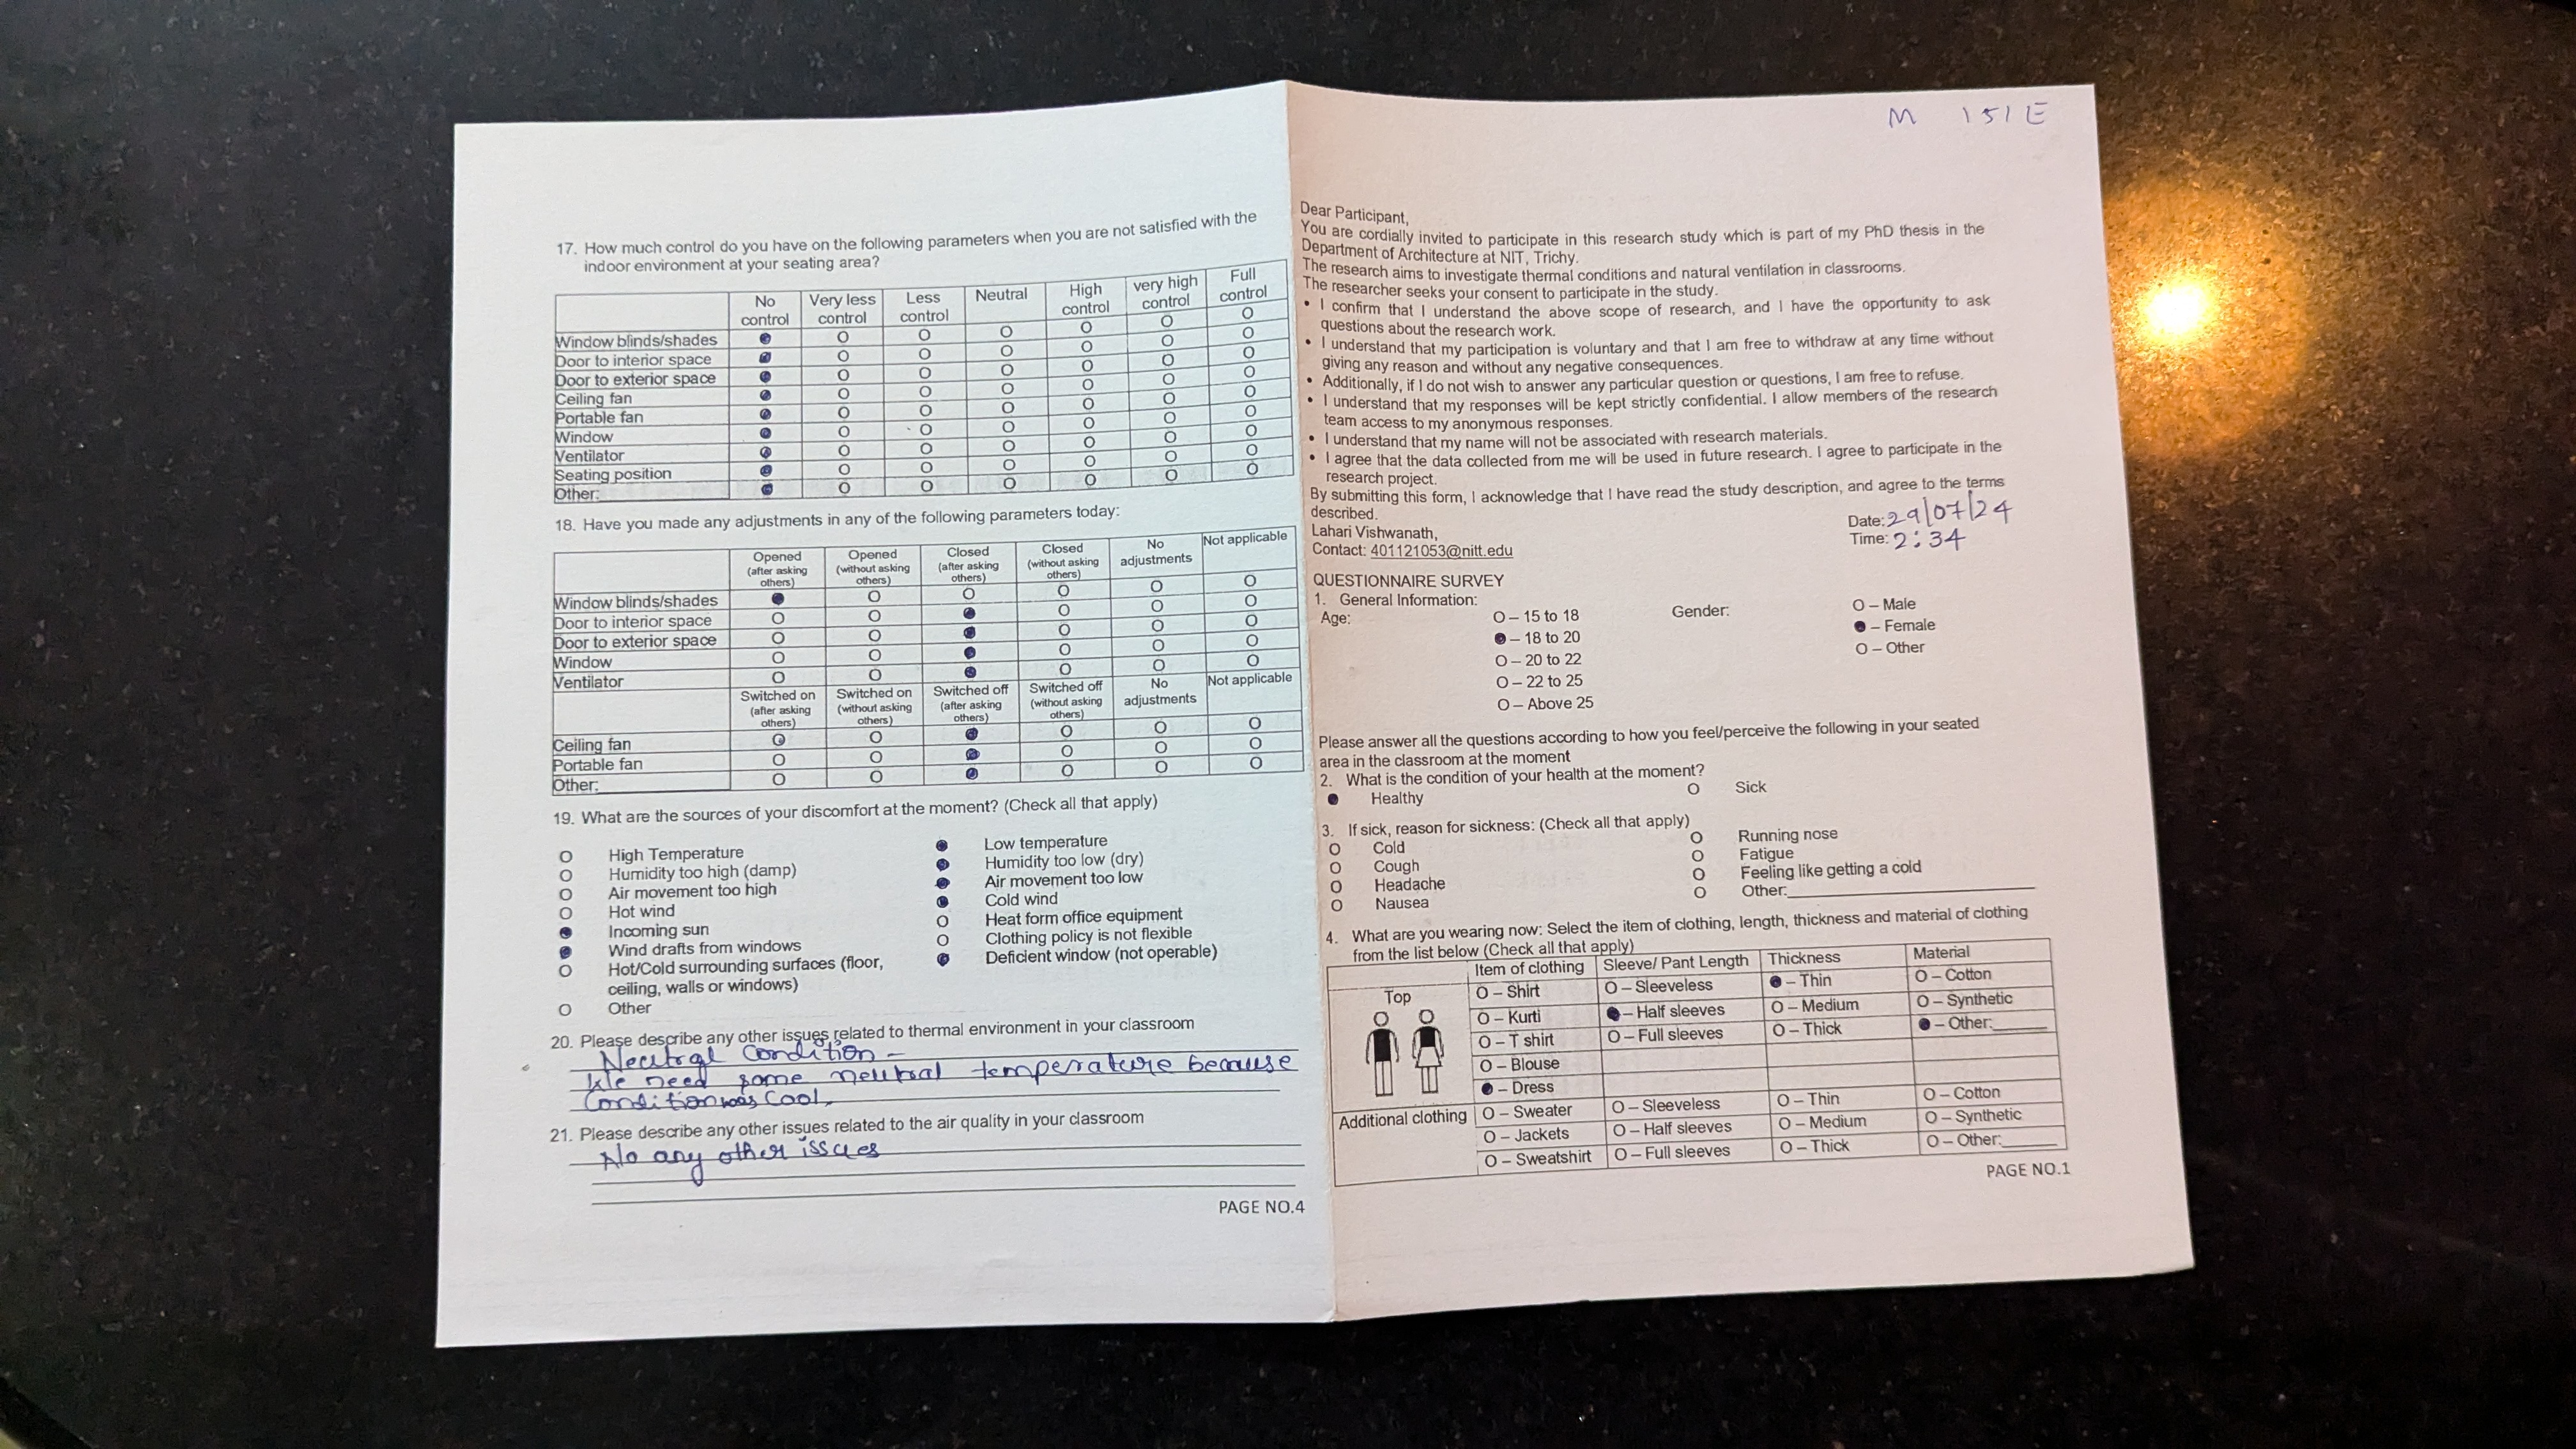 17. How much control do you have on the following parameters when you are not satisfied with the
indoor environment at your seating area?
No control | Very less control | Less control | Neutral | High control | very high control | Full control
Window blinds/shades ● O O O O O O
Door to interior space ● O O O O O O
Door to exterior space ● O O O O O O
Ceiling fan ● O O O O O O
Portable fan ● O O O O O O
Window ● O O O O O O
Ventilator ● O O O O O O
Seating position ● O O O O O O
Other: ● O O O O O O
18. Have you made any adjustments in any of the following parameters today:
Opened (after asking others) | Opened (without asking others) | Closed (after asking others) | Closed (without asking others) | No adjustments | Not applicable
Window blinds/shades ● O O O O O
Door to interior space O O ● O O O
Door to exterior space O O ● O O O
Window O O ● O O O
Ventilator O O ● O O O
Switched on (after asking others) | Switched on (without asking others) | Switched off (after asking others) | Switched off (without asking others) | No adjustments | Not applicable
Ceiling fan O O ● O O O
Portable fan O O ● O O O
Other: O O ● O O O
19. What are the sources of your discomfort at the moment? (Check all that apply)
O High Temperature
O Humidity too high (damp)
O Air movement too high
O Hot wind
● Incoming sun
● Wind drafts from windows
O Hot/Cold surrounding surfaces (floor,
ceiling, walls or windows)
O Other
● Low temperature
● Humidity too low (dry)
● Air movement too low
● Cold wind
O Heat form office equipment
O Clothing policy is not flexible
● Deficient window (not operable)
20. Please describe any other issues related to thermal environment in your classroom
Neutral Condition -
We need some neutral temperature because
Condition was Cool.
21. Please describe any other issues related to the air quality in your classroom
No any other issues
PAGE NO.4
M 151E
Dear Participant,
You are cordially invited to participate in this research study which is part of my PhD thesis in the
Department of Architecture at NIT, Trichy.
The research aims to investigate thermal conditions and natural ventilation in classrooms.
The researcher seeks your consent to participate in the study.
• I confirm that I understand the above scope of research, and I have the opportunity to ask
questions about the research work.
• I understand that my participation is voluntary and that I am free to withdraw at any time without
giving any reason and without any negative consequences.
• Additionally, if I do not wish to answer any particular question or questions, I am free to refuse.
• I understand that my responses will be kept strictly confidential. I allow members of the research
team access to my anonymous responses.
• I understand that my name will not be associated with research materials.
• I agree that the data collected from me will be used in future research. I agree to participate in the
research project.
By submitting this form, I acknowledge that I have read the study description, and agree to the terms
described.
Lahari Vishwanath,
Contact: 401121053@nitt.edu
Date: 29/07/24
Time: 2:34
QUESTIONNAIRE SURVEY
1. General Information:
Age:
O – 15 to 18
● – 18 to 20
O – 20 to 22
O – 22 to 25
O – Above 25
Gender:
O – Male
● – Female
O – Other
Please answer all the questions according to how you feel/perceive the following in your seated
area in the classroom at the moment
2. What is the condition of your health at the moment?
● Healthy O Sick
3. If sick, reason for sickness: (Check all that apply)
O Cold
O Cough
O Headache
O Nausea
O Running nose
O Fatigue
O Feeling like getting a cold
O Other:
4. What are you wearing now: Select the item of clothing, length, thickness and material of clothing
from the list below (Check all that apply)
Item of clothing | Sleeve/ Pant Length | Thickness | Material
Top
O – Shirt | O – Sleeveless | ● – Thin | O – Cotton
O – Kurti | ● – Half sleeves | O – Medium | O – Synthetic
O – T shirt | O – Full sleeves | O – Thick | ● – Other:
O – Blouse
● – Dress
Additional clothing
O – Sweater | O – Sleeveless | O – Thin | O – Cotton
O – Jackets | O – Half sleeves | O – Medium | O – Synthetic
O – Sweatshirt | O – Full sleeves | O – Thick | O – Other:
PAGE NO.1